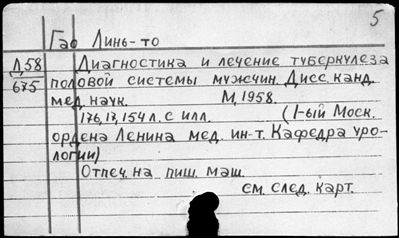 5
Гао Линь-то
Д58 Диагностика и лечение туберкулеза
675 половой системы мужчин. Дисс. канд.
мед. наук. М, 1958.
176, 17, 154 л. с илл. (1-ый Моск.
ордена Ленина мед. ин-т. Кафедра уро-
логии)
Отпеч. на пиш. маш.
см. след. карт.